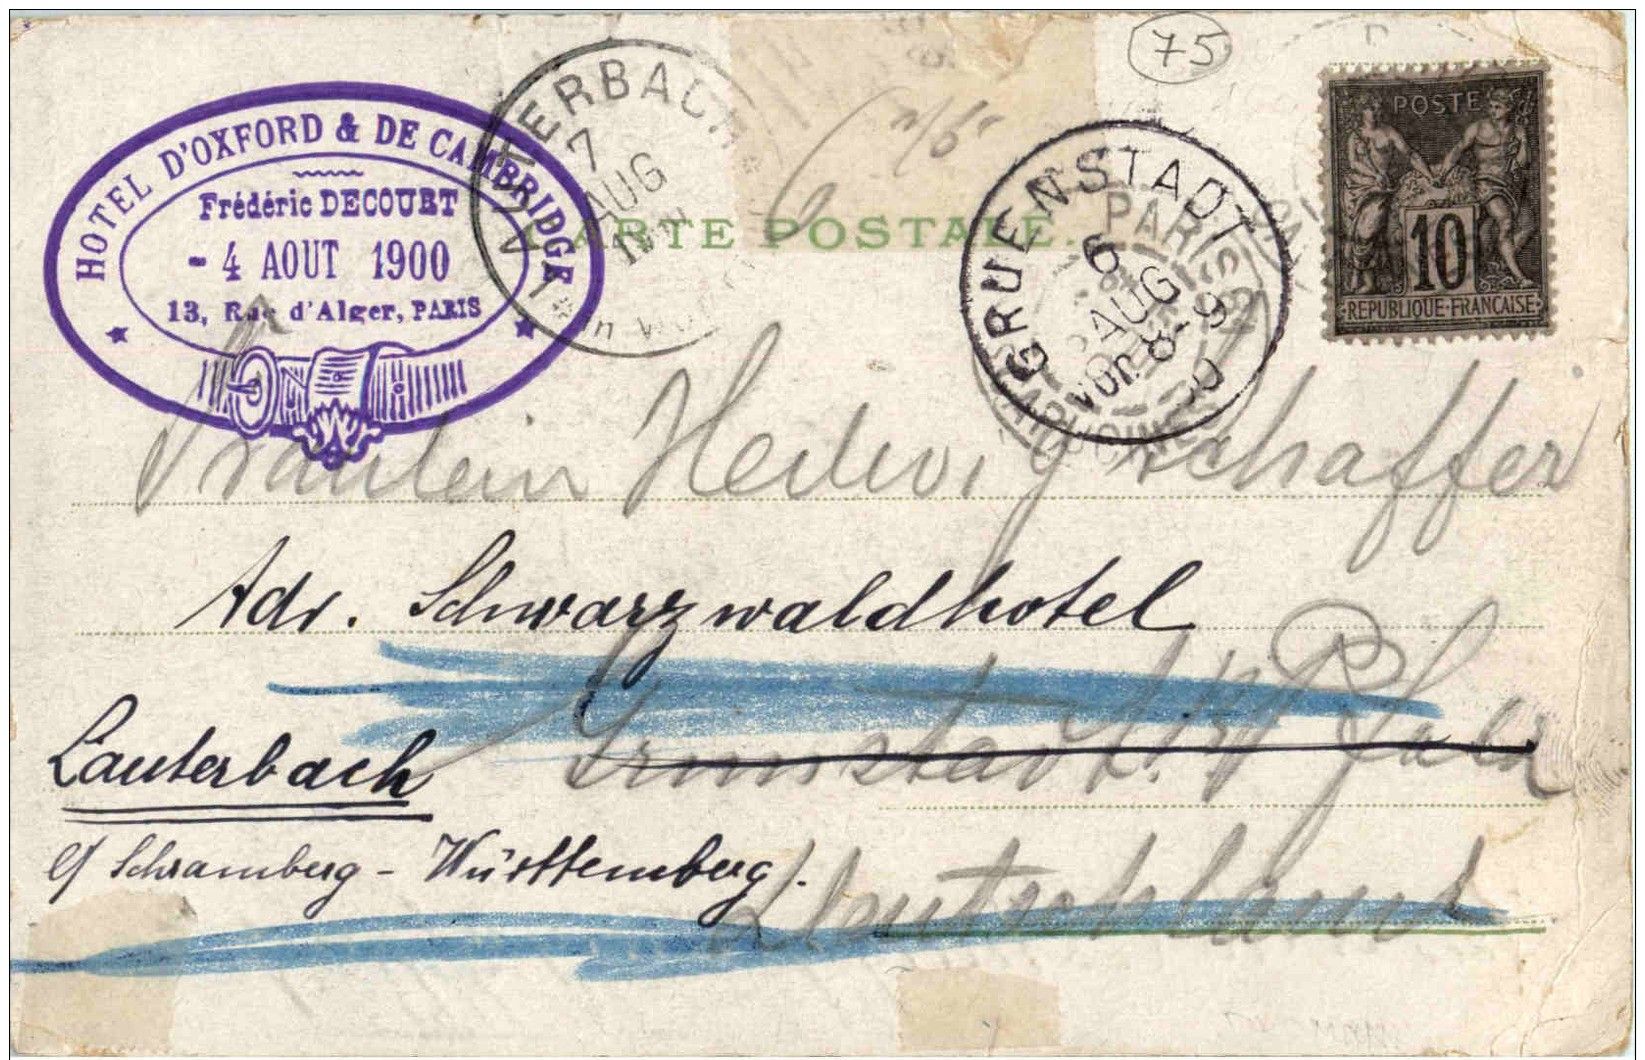 75
POSTE
10
REPUBLIQUE FRANÇAISE
HOTEL D'OXFORD & DE CAMBRIDGE
Frédéric DECOURT
- 4 AOUT 1900
13, Rue d'Alger, PARIS
7
AUG
GRUENSTADT
6
AUG
von 8-9
00
PARIS
CARTE POSTALE.
Fräulein Hedwig Schaffer
Adr. Schwarzwaldhotel
Grünstadt Pfalz
Lauterbach
b/ Schramberg - Württemberg.
Deutschland